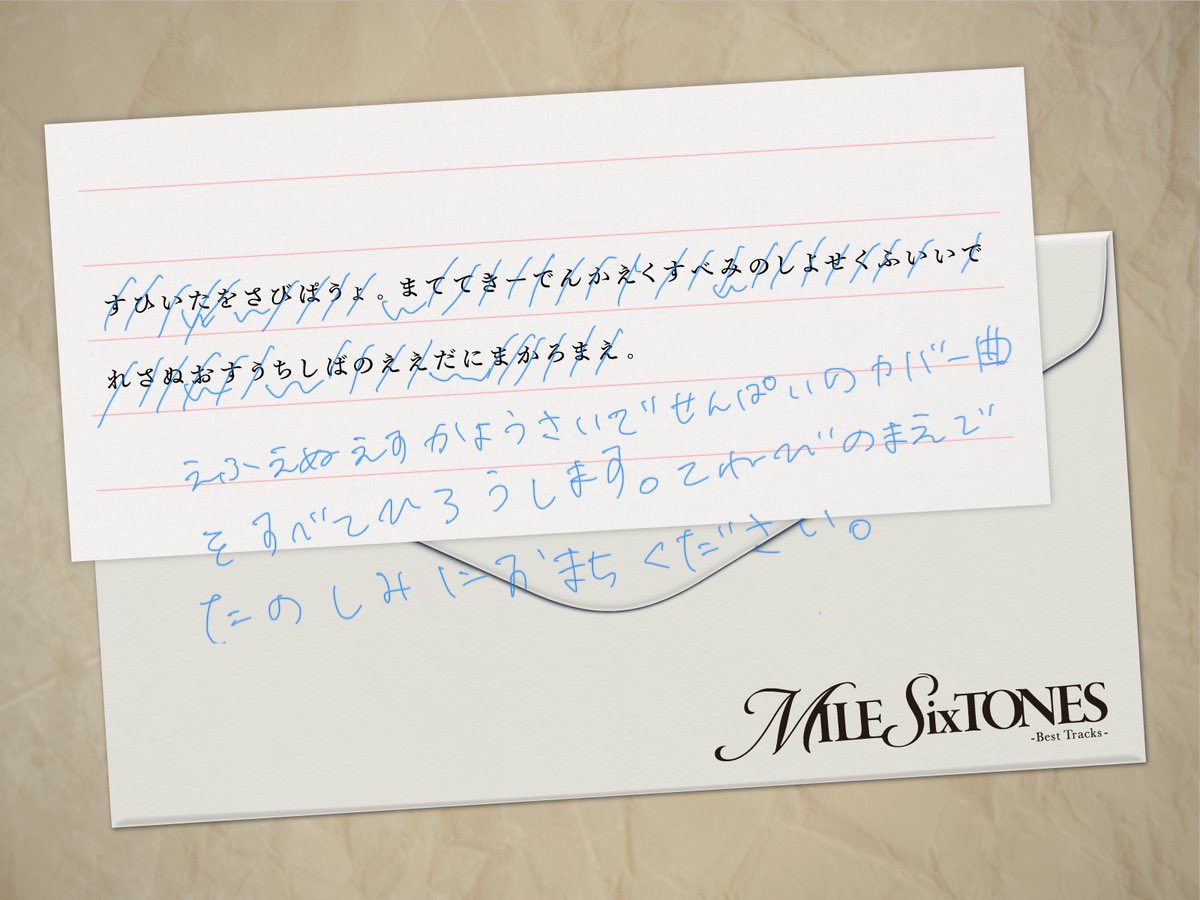 すひいたをさびぱうょ。まててきーでんかえくすべみのしよせくふいいで
れさぬおすうちしばのええだにまかろまえ。
えふえぬえすかようさいでせんぱいのカバー曲
をすべてひろうします。てれびのまえで
たのしみにおまちください。
MILE SixTONES
-Best Tracks-